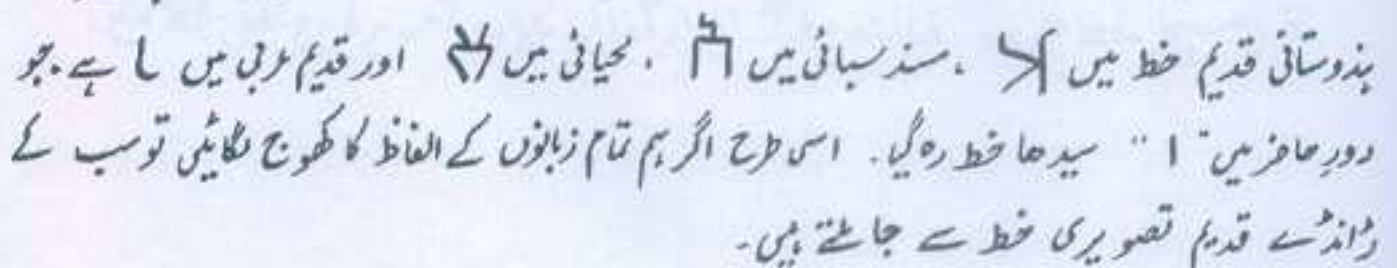 ہندوستانی قدیم خط میں ، سند سبائی میں ، لحیانی میں اور قدیم عربی میں L ہے ۔ جو
دورِ حاضر میں " ا " سیدھا خط رہ گیا ۔ اسی طرح اگر ہم تمام زبانوں کے الفاظ کا کھوج لگائیں تو سب کے
ڈانڈے قدیم تصویری خط سے جا ملتے ہیں ۔